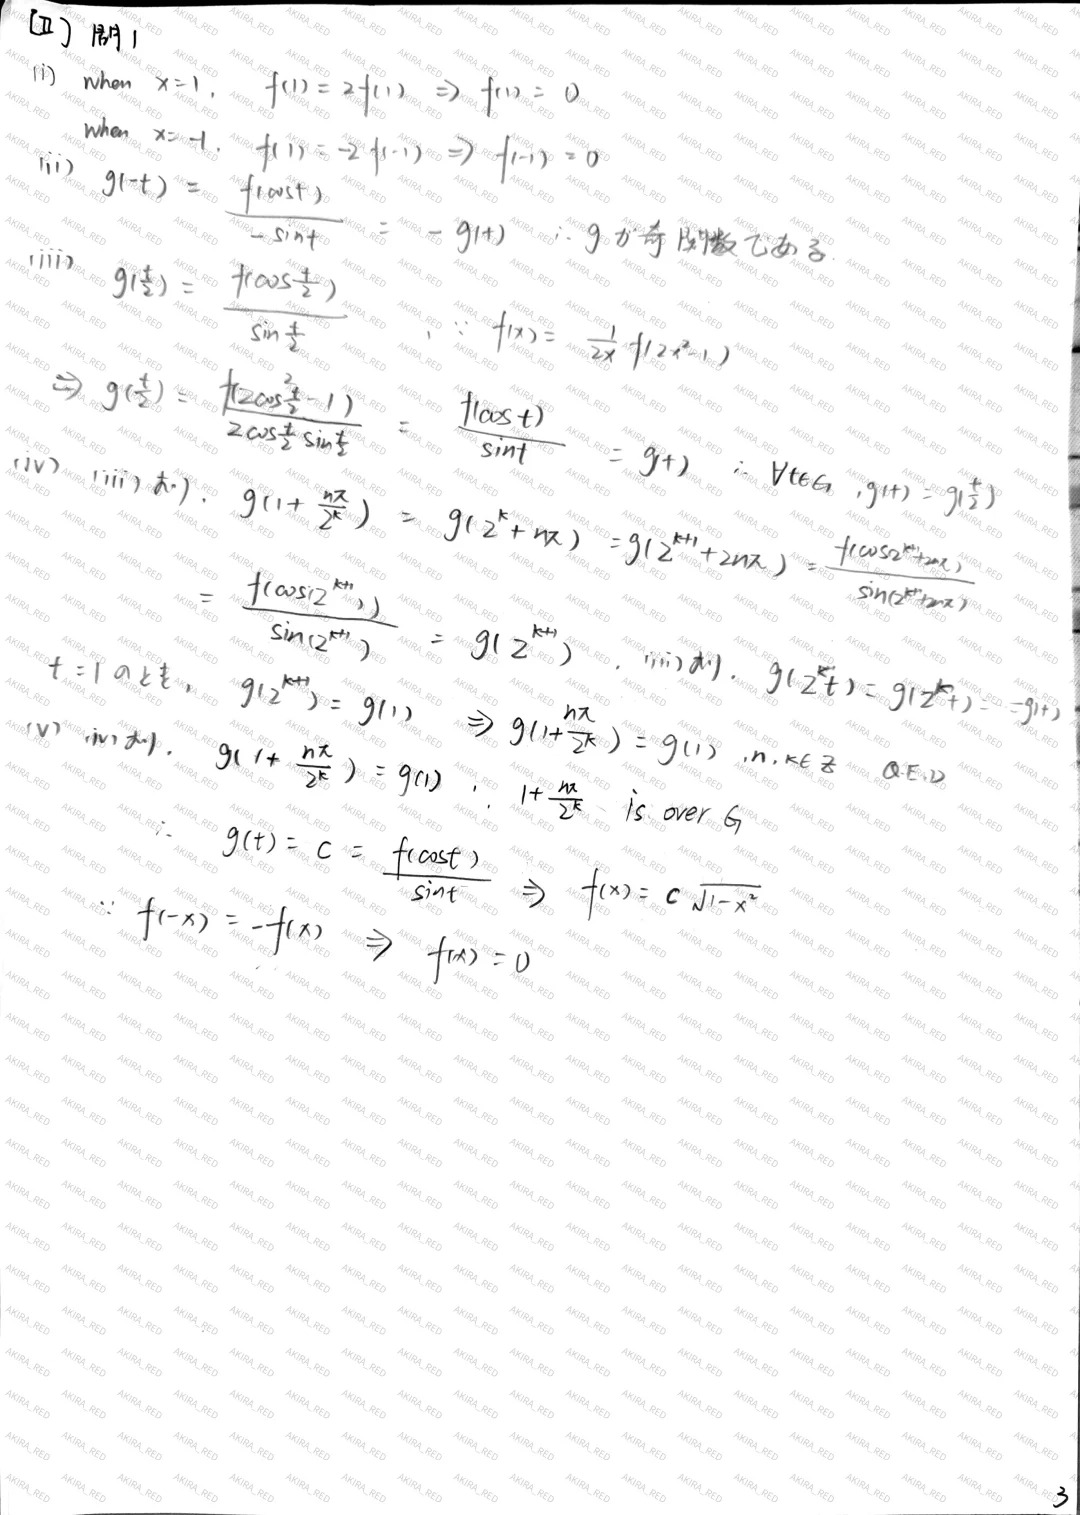 [II] 問1
(i) when x=1, f(1) = 2f(1) ⇒ f(1) = 0
when x=-1, f(1) = -2f(-1) ⇒ f(-1) = 0
(ii) g(-t) = f(cost) / -sint = -g(t) ∴ g が奇関数である
(iii) g(t/2) = f(cos t/2) / sin t/2 , ∵ f(x) = 1/2x f(2x²-1)
⇒ g(t/2) = f(2cos² t/2 - 1) / 2cos t/2 sin t/2 = f(cos t) / sint = g(t) ∴ ∀t∈G, g(t) = g(t/2)
(iv) (iii)より. g(1+ nπ/2^k) = g(2^k + nπ) = g(2^{k+1} + 2nπ) = f(cos2^{k+1}+2nπ) / sin(2^{k+1}+2nπ)
= f(cos(2^{k+1})) / sin(2^{k+1}) = g(2^{k+1}) . (iii)より. g(2^k t) = g(2^k t) = -g(t)
t=1のとき, g(2^{k+1}) = g(1) ⇒ g(1+ nπ/2^k) = g(1) ,n,k∈Z Q.E.D
(v) (iv)より. g(1+ nπ/2^k) = g(1) ∵ 1+ nπ/2^k is over G
∴ g(t) = c = f(cost) / sint ⇒ f(x) = c √1-x²
∵ f(-x) = -f(x) ⇒ f(x) = 0
3
AKIRA_RED